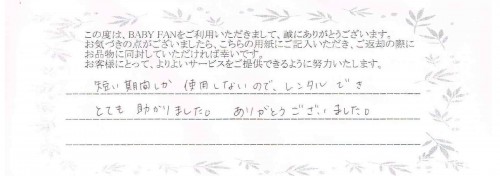 この度は、BABY FANをご利用いただきまして、誠にありがとうございます。
お気づきの点がございましたら、こちらの用紙にご記入いただき、ご返却の際に
お品物に同封していただければ幸いです。
お客様にとって、よりよいサービスをご提供できるように努力いたします。
短い期間しか 使用しないので、レンタルでき
とても 助かりました。 ありがとうございました。